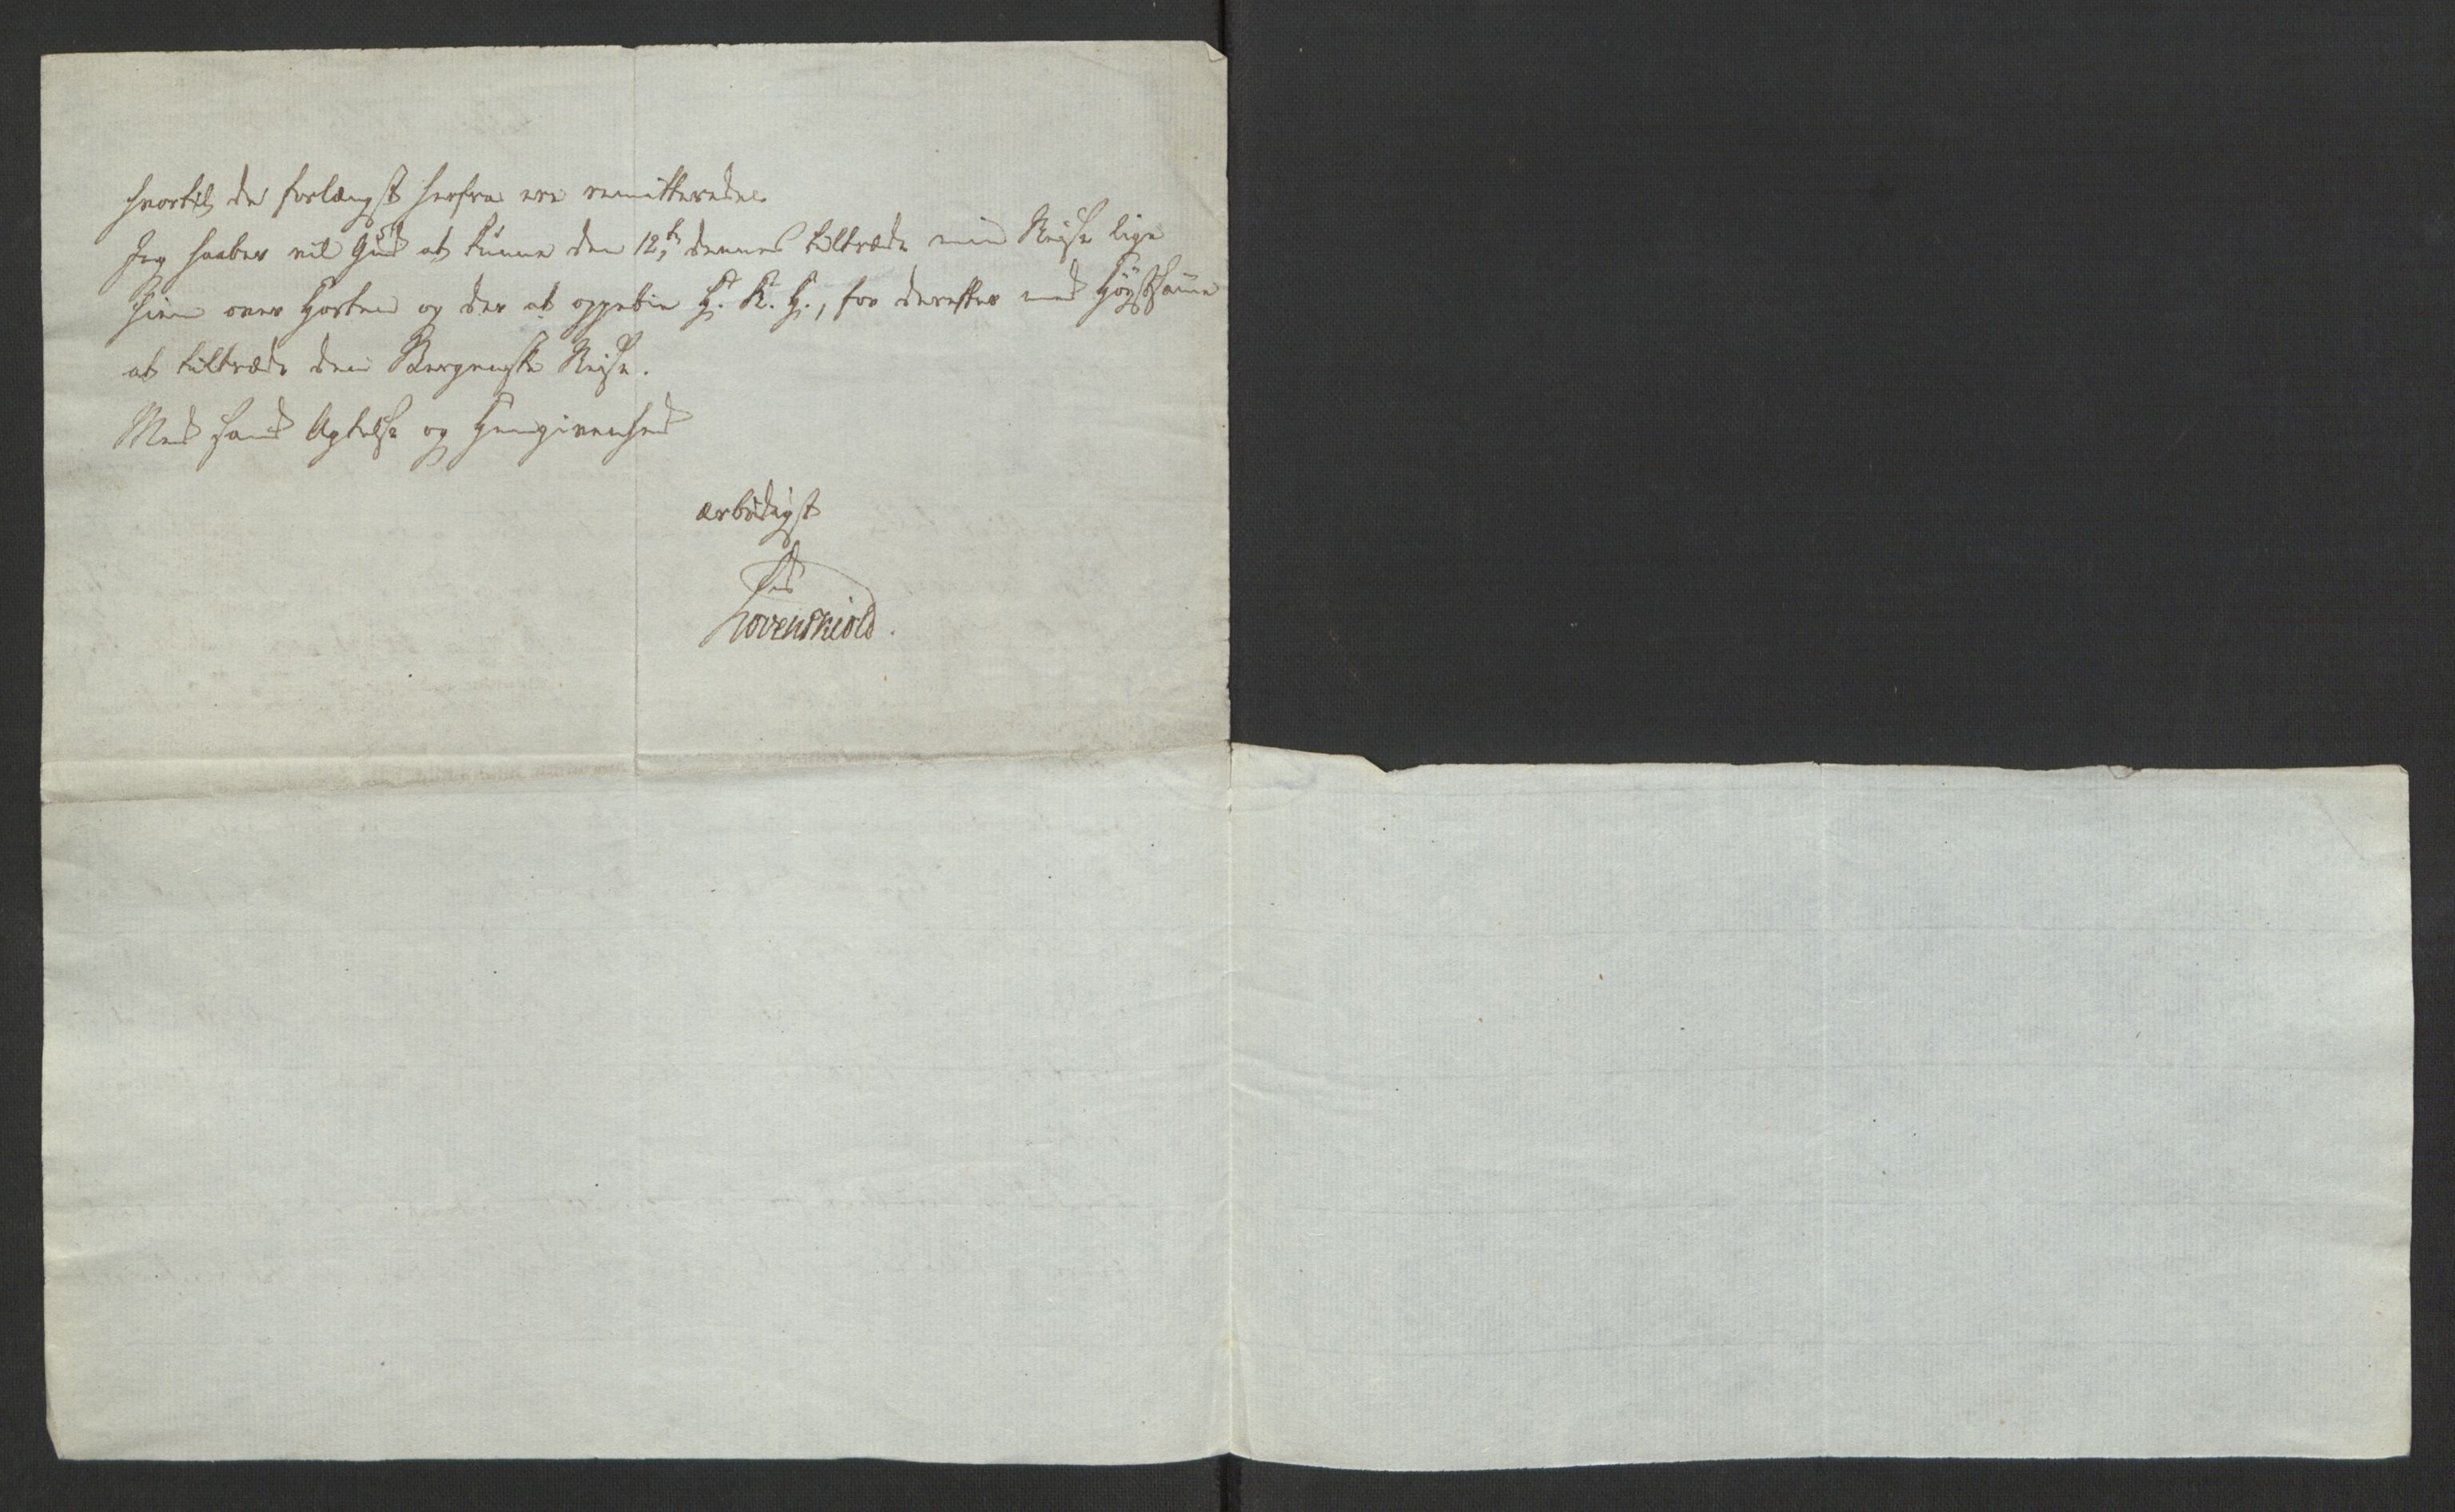 hvortil de forlængst herfra ere remitterede.
Jeg haaber vil Gud at kunne den 12te dennes tiltræde min Rejse lige
hien over Horten og der at oppebie H. K. H., for derefter med Høystsamme
at tiltræde den Bergenske Rejse.
Med sand Agtelse og Hengivenhed
ærbødigst
Løvenskiold.